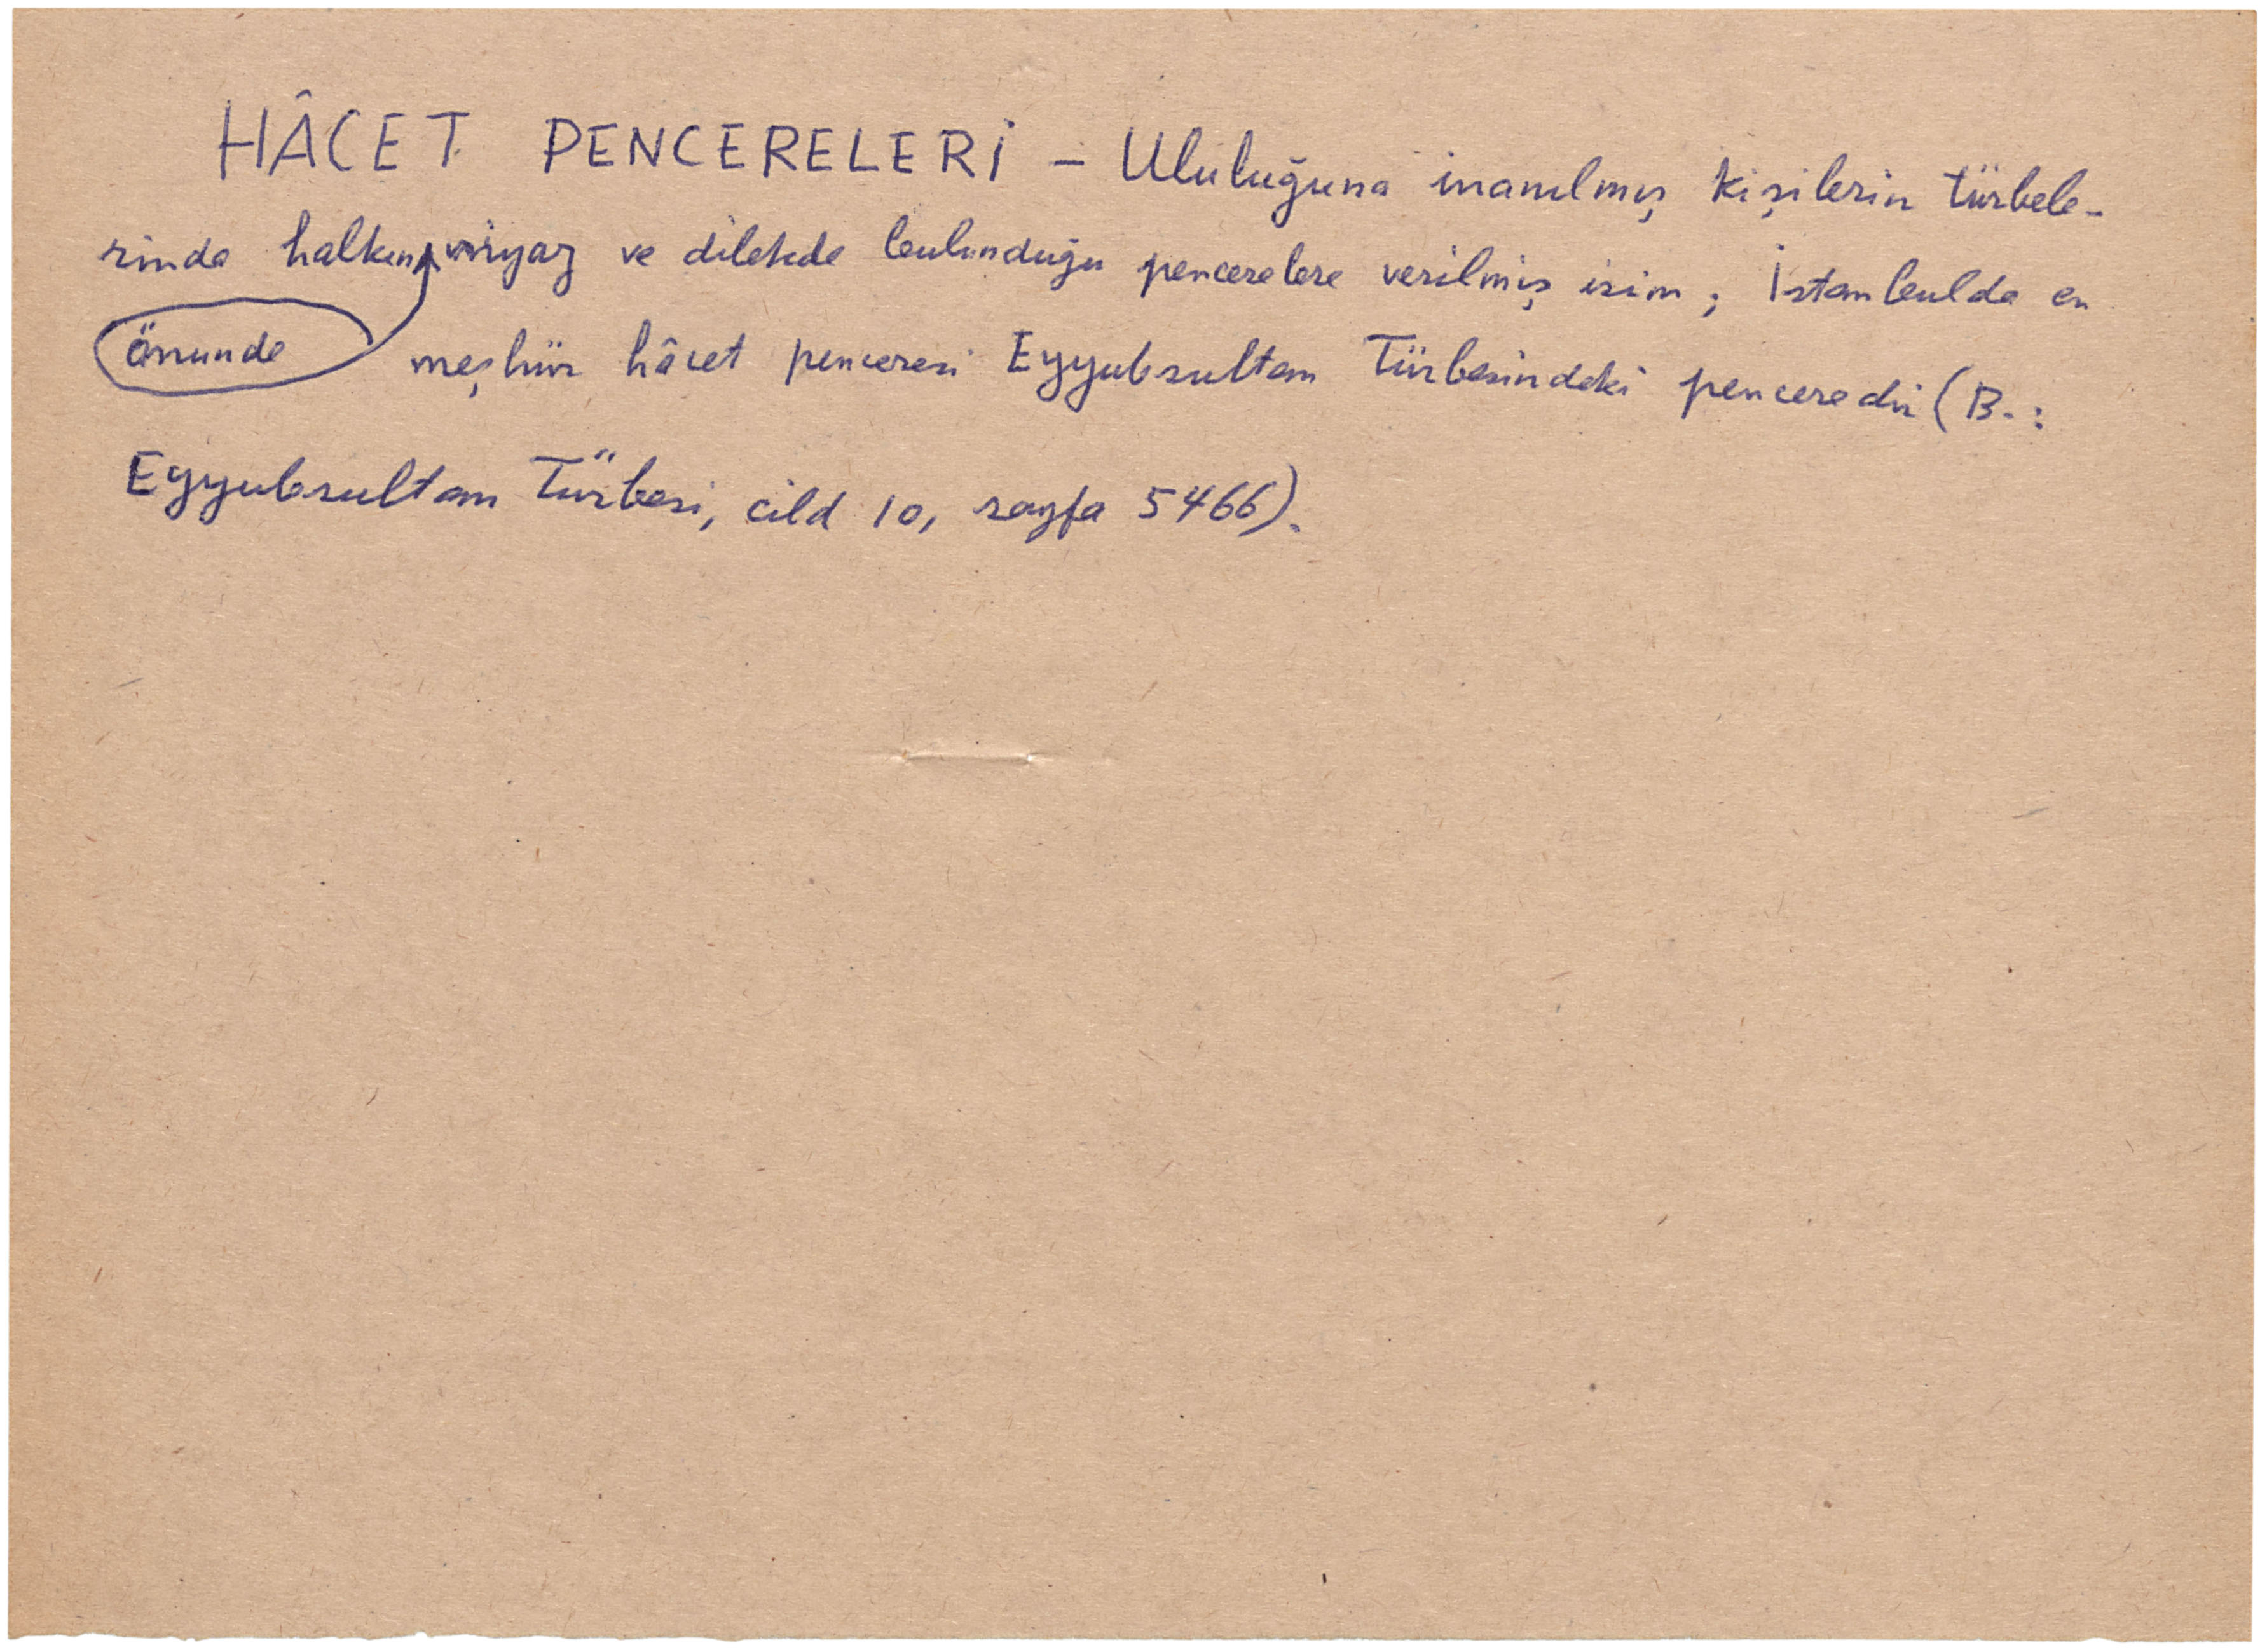 HÂCET PENCERELERİ – Ululuğuna inanılmış kişilerin türbele-
rinde halkın niyaz ve dilekde bulunduğu pencerelere verilmiş isim; İstanbulda en
önünde meşhûr hâcet penceresi Eyyubsultan Türbesindeki penceredir (B.:
Eyyubsultan Türbesi, cild 10, sayfa 5466).